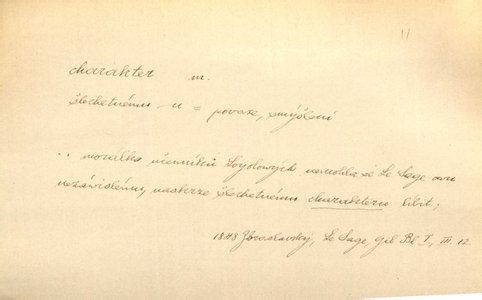 11
charakter m.
šlechetnému -u = povaze, smýšlení
.. morálka učenníků Loyolových nemohla sé Le Sage-ovu
nezávislému, naskrze šlechetnému charakteru líbit;
1848 Zbraslavský, Le Sage, Gil Bl. I., III. 12